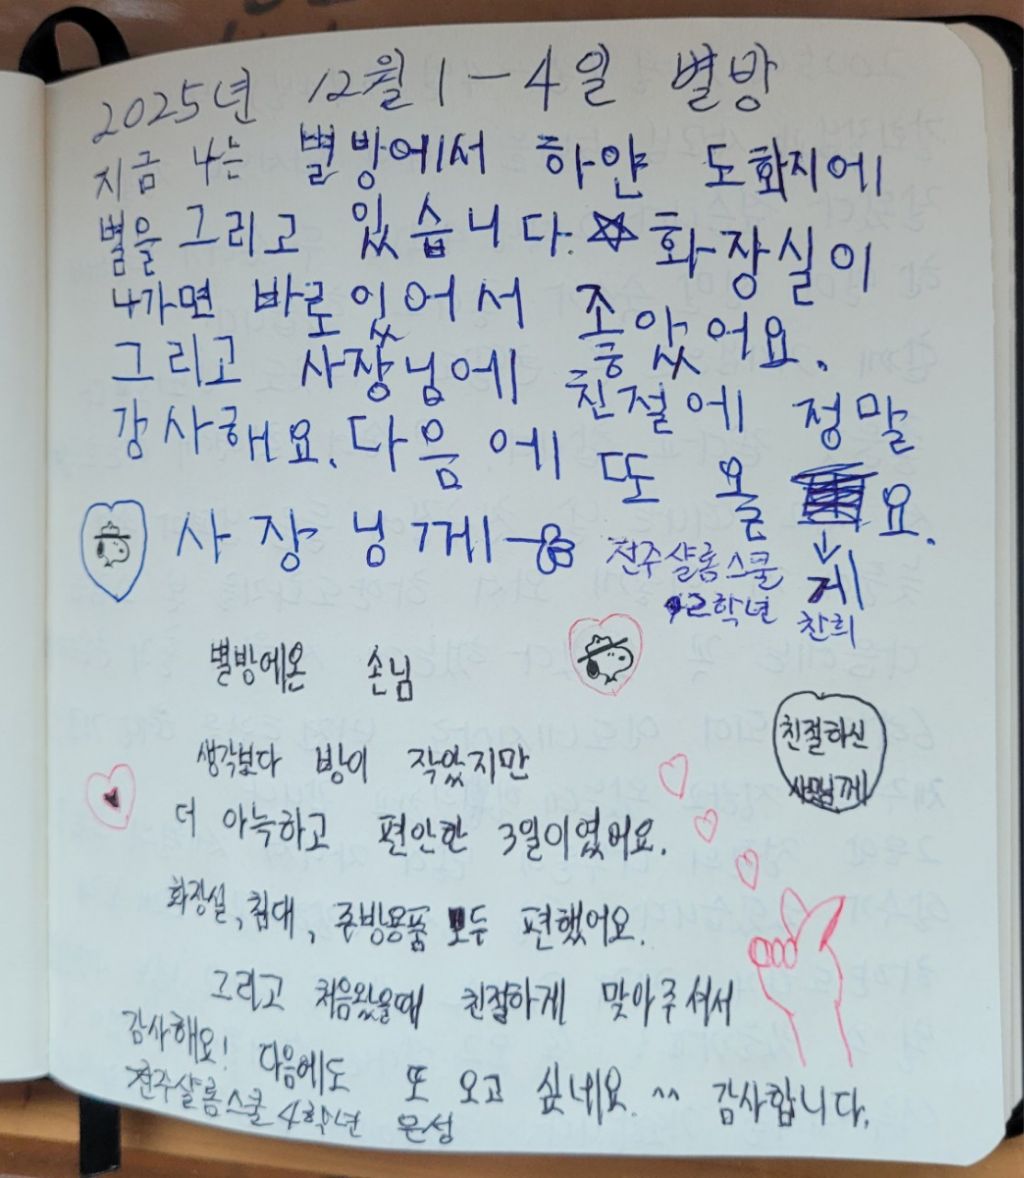 2025년 12월 1-4일 별방
지금 나는 별방에서 하얀 도화지에
별을 그리고 있습니다. 화장실이
나가면 바로있어서 좋았어요.
그리고 사장님에 친절에 정말
감사해요. 다음에 또 올 요.
게
사장닝께
전주샬롬스쿨
2학년 찬희
별방에온 손님
친절하신
사모님께
생각보다 방이 작았지만
더 아늑하고 편안한 3일이였어요.
화장실, 침대, 준방용품 모두 편했어요.
그리고 처음왔을때 친절하게 맞아주셔서
감사해요! 다음에도 또 오고 싶네요. ^^ 감사합니다.
전주샬롬스쿨 4학년 은성